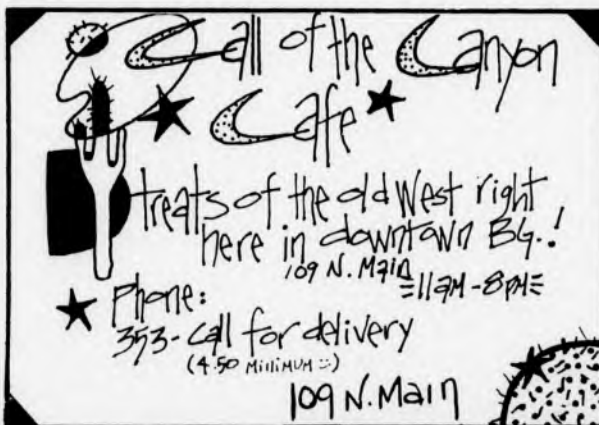 Call of the Canyon
Cafe
treats of the old West right
here in downtown BG..!
109 N. Main
=11am-8pm=
Phone:
353-call for delivery
(4.50 MiNiMUM :-)
109 N. Main